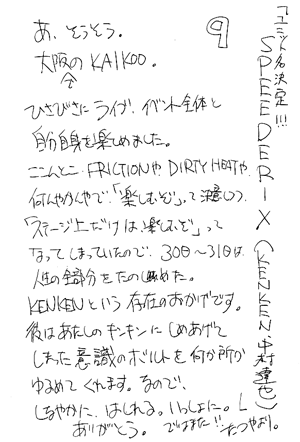 9
あ、そうそう。
大阪での KAIKOO。
ひさびさにライブ、イベント全体と
自分自身を楽しめました。
ここんとこ FRICTIONや DIRTY HEATや
何んやかんやで「楽しむぞ」って決意しつつ
「ステージ上だけは楽しむぞ」って
なってしまっていたので、30日〜31日は
人生の全部分をたのしめた。
KENKENという存在のおかげです。
彼はあたしのキンキンにしめあげて
しまった意識のボルトを何か所か
ゆるめてくれます。なので、
しなやかに、はしれる。いっしょに。
ありがとう。ではまた!!たつやより。
「ユニット名決定!!!
SPEEDER-X (KENKEN 中村達也)」